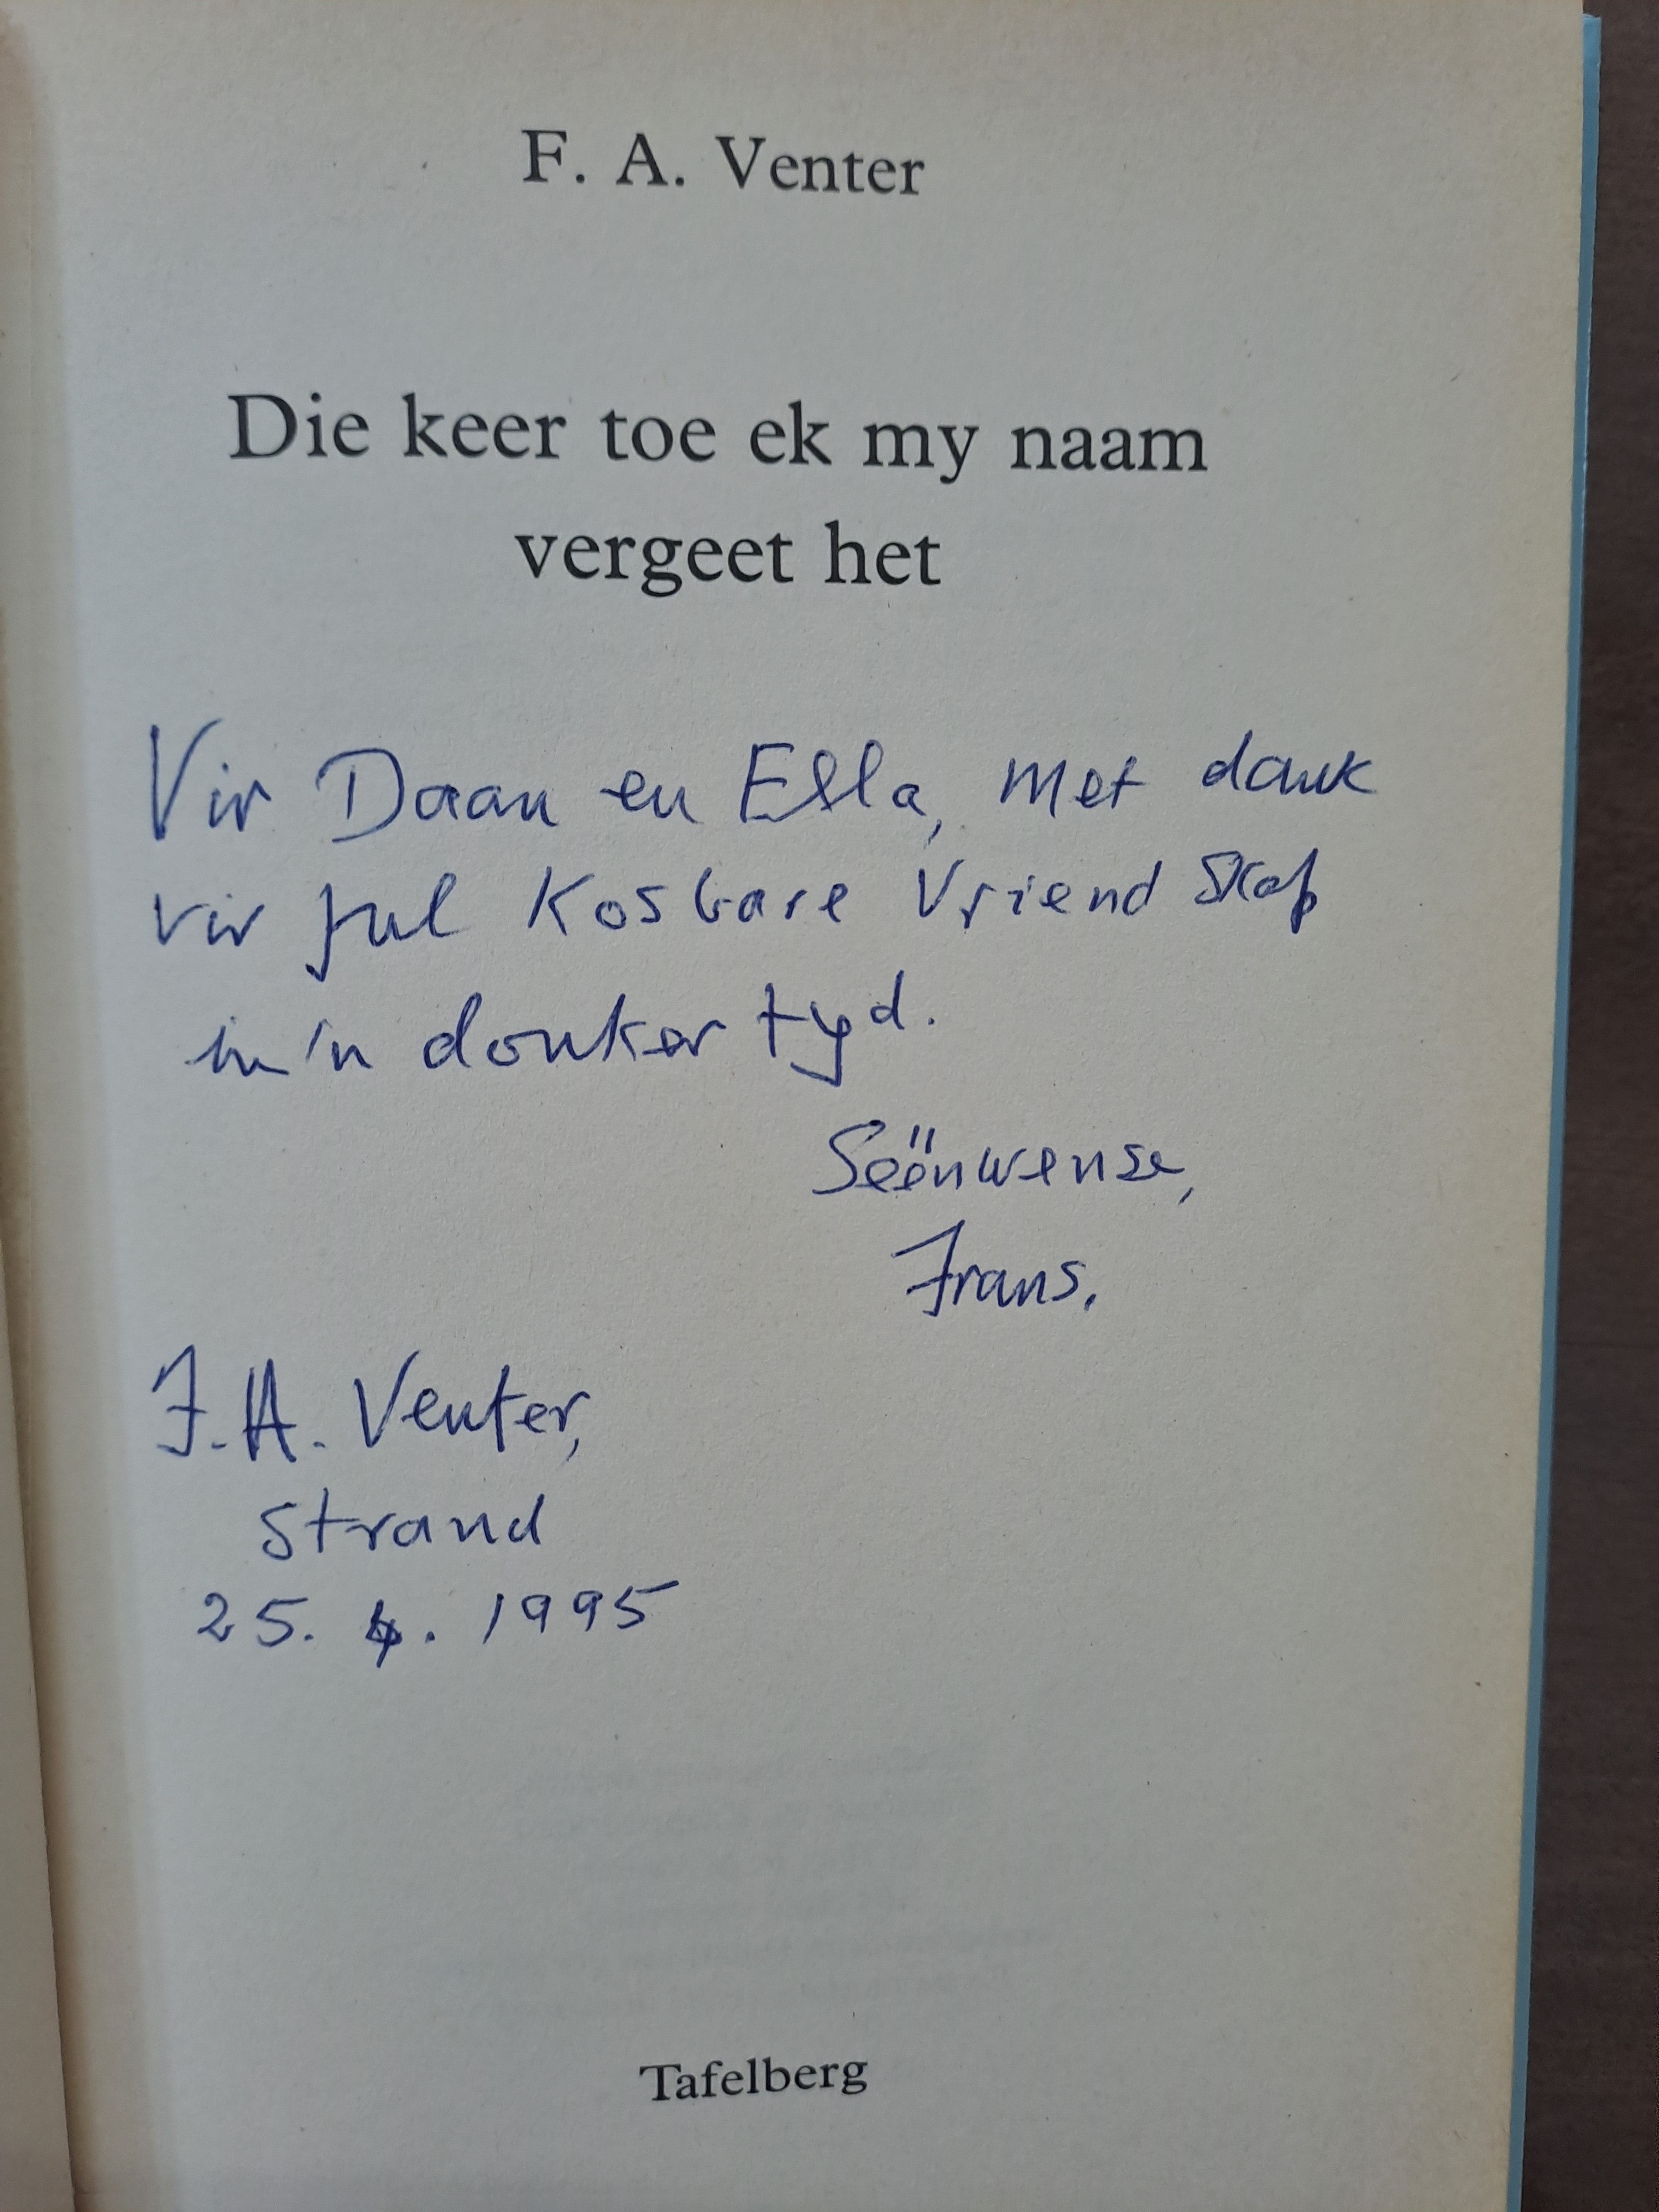 F. A. Venter
Die keer toe ek my naam
vergeet het
Vir Daan en Ella, met dank
vir jul kosbare vriendskap
in 'n donker tyd.
Seënwense,
Frans.
F. A. Venter,
Strand
25. 4. 1995
Tafelberg